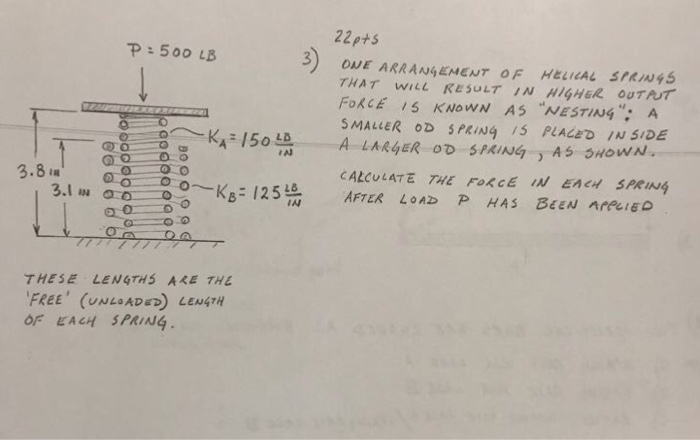 22pts
3) ONE ARRANGEMENT OF HELICAL SPRINGS
THAT WILL RESULT IN HIGHER OUTPUT
FORCE IS KNOWN AS "NESTING"; A
SMALLER OD SPRING IS PLACED INSIDE
A LARGER OD SPRING, AS SHOWN.
CALCULATE THE FORCE IN EACH SPRING
AFTER LOAD P HAS BEEN APPLIED
P = 500 LB
KA = 150 LB/IN
3.8 IN
3.1 IN
KB = 125 LB/IN
THESE LENGTHS ARE THE
'FREE' (UNLOADED) LENGTH
OF EACH SPRING.